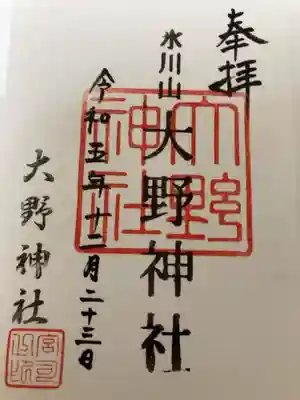 奉拝
氷川山
大野神社
令和五年十二月二十三日
大野神社
大野
神社